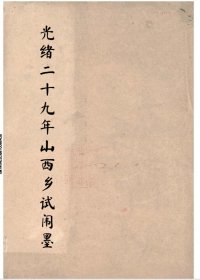 光绪二十九年山西乡试闱墨